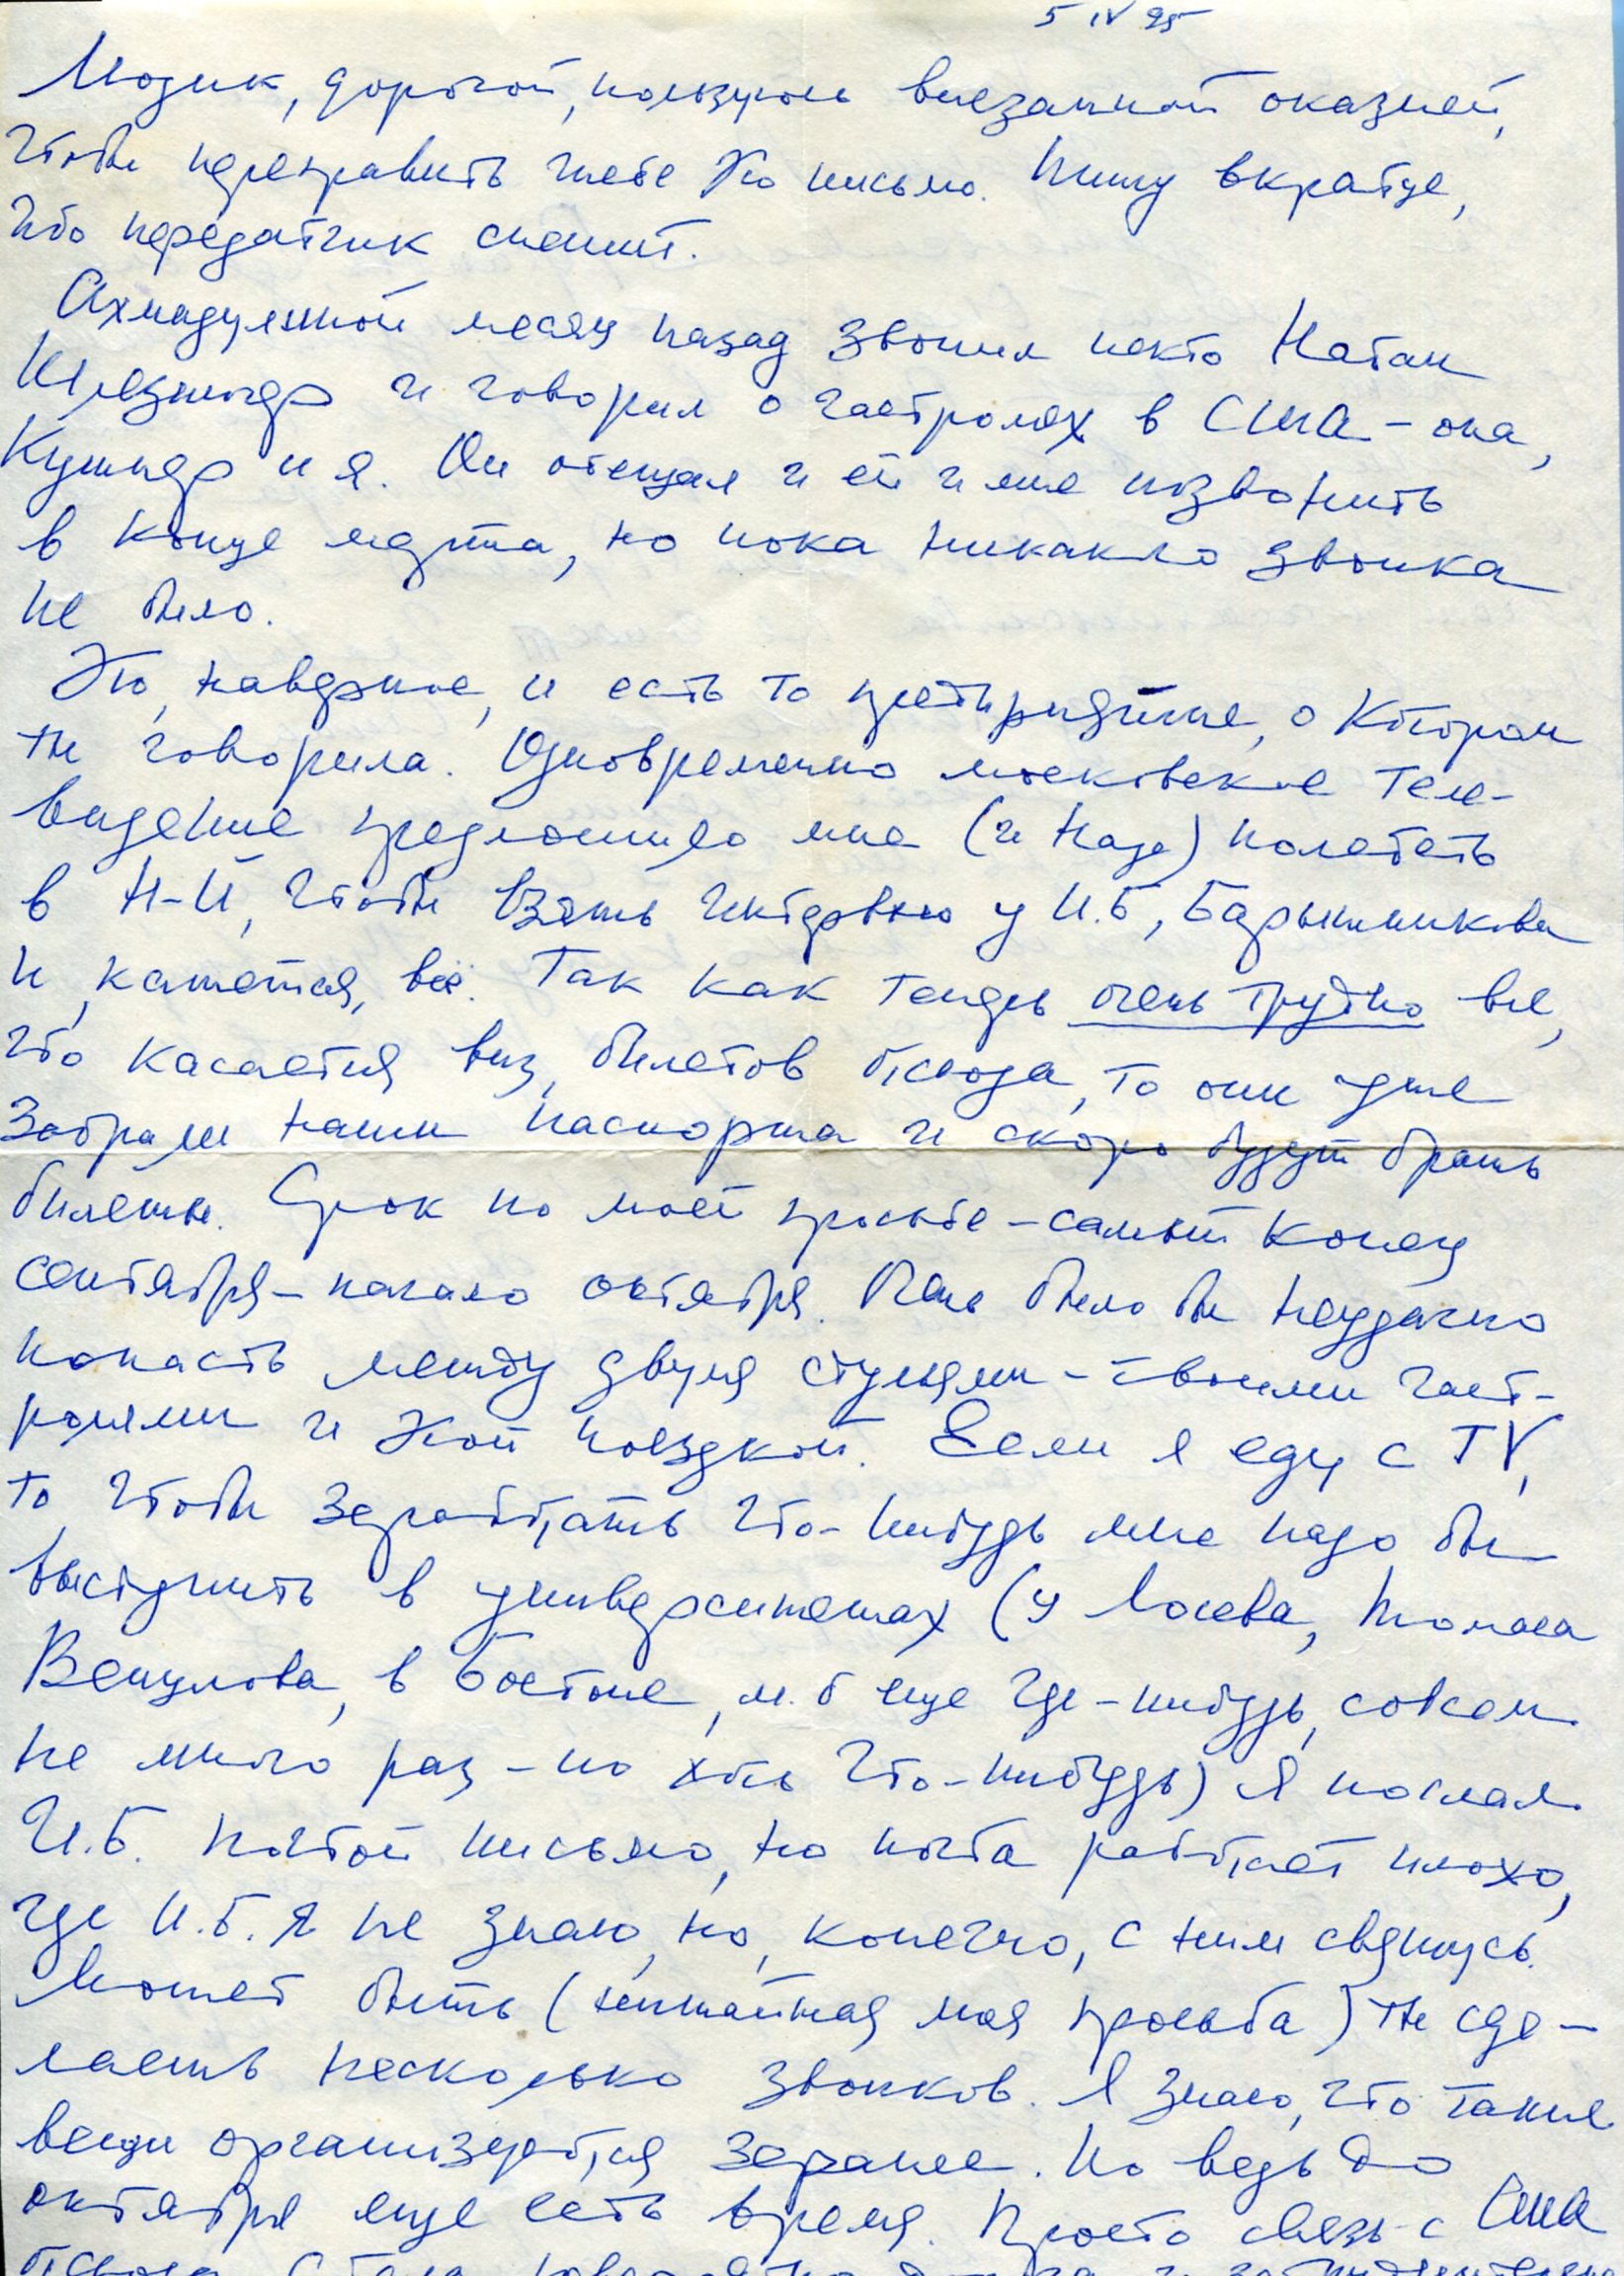 5 IV 95
Людик, дорогой, пользуюсь внезапной оказией,
чтобы переправить тебе это письмо. Пишу вкратце,
ибо передатчик спешит.
Ахмадулиной месяц назад звонил некто Натан
Шлезингер и говорил о гастролях в США – она,
Кушнер и я. Он обещал и ей и мне позвонить
в конце марта, но пока никакого звонка
не было.
Это, наверное, и есть то предприятие, о котором
ты говорила. Одновременно московское теле-
видение предложило мне (и Наде) полететь
в Н-Й, чтобы взять интервью у И.Б, Барышникова
и, кажется, всё. Так как теперь очень трудно все,
что касается виз, билетов отсюда, то они уже
забрали наши паспорта и скоро будут брать
билеты. Срок по моей просьбе – самый конец
сентября – начало октября. Мне было бы неудачно
попасть между двумя стульями – твоими гаст-
ролями и этой поездкой. Если я еду с TV,
то чтобы заработать что-нибудь мне надо бы
выступить в университетах (у Лосева, Томаса
Венцлова, в Бостоне, м.б еще где-нибудь, совсем
не много раз – но хоть что-нибудь) Я послал
И.Б. почтой письмо, но почта работает плохо,
где И.Б. я не знаю, но, конечно, с ним свяжусь.
Может быть (нижайшая моя просьба) ты сде-
лаешь несколько звонков. Я знаю, что такие
вещи организуются заранее. Но ведь до
октября еще есть время. Просто связь с США
отсюда стала